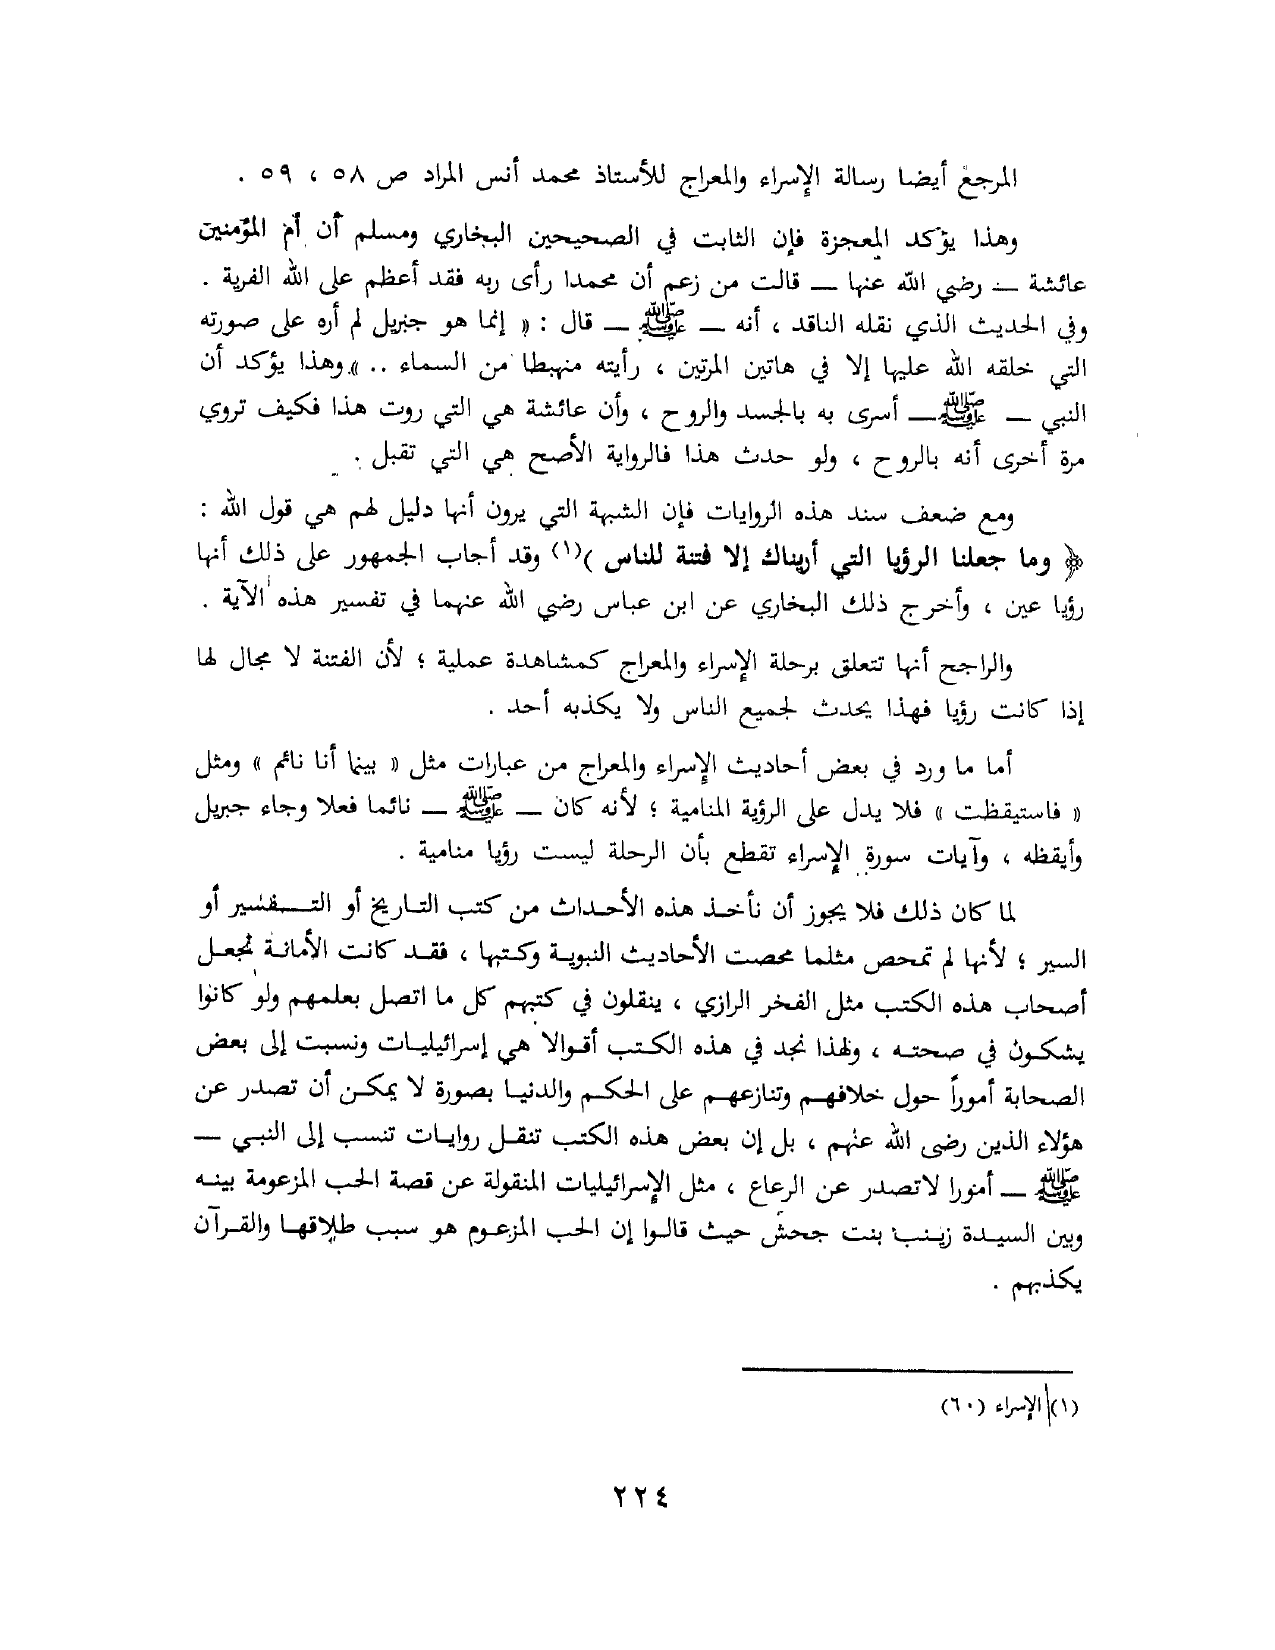 المرجع أيضا رسالة الإسراء والمعراج للأستاذ محمد أنس المراد ص ٥٨ ، ٥٩ .
وهذا يؤكد المعجزة فإن الثابت في الصحيحين البخاري ومسلم أن أم المؤمنين
عائشة ــ رضي الله عنها ــ قالت من زعم أن محمدا رأى ربه فقد أعظم على الله الفرية .
وفي الحديث الذي نقله الناقد ، أنه ــ ﷺ ــ قال : « إنما هو جبريل لم أره على صورته
التي خلقه الله عليها إلا في هاتين المرتين ، رأيته منهبطا من السماء .. » وهذا يؤكد أن
النبي ــ ﷺ ــ أسرى به بالجسد والروح ، وأن عائشة هي التي روت هذا فكيف تروي
مرة أخرى أنه بالروح ، ولو حدث هذا فالرواية الأصح هي التي تقبل .
ومع ضعف سند هذه الروايات فإن الشبهة التي يرون أنها دليل لهم هي قول الله :
﴿ وما جعلنا الرؤيا التي أريناك إلا فتنة للناس )(١) وقد أجاب الجمهور على ذلك أنها
رؤيا عين ، وأخرج ذلك البخاري عن ابن عباس رضي الله عنهما في تفسير هذه الآية .
والراجح أنها تتعلق برحلة الإسراء والمعراج كمشاهدة عملية ؛ لأن الفتنة لا مجال لها
إذا كانت رؤيا فهذا يحدث لجميع الناس ولا يكذبه أحد .
أما ما ورد في بعض أحاديث الإسراء والمعراج من عبارات مثل « بينما أنا نائم » ومثل
« فاستيقظت » فلا يدل على الرؤية المنامية ؛ لأنه كان ــ ﷺ ــ نائما فعلا وجاء جبريل
وأيقظه ، وآيات سورة الإسراء تقطع بأن الرحلة ليست رؤيا منامية .
لما كان ذلك فلا يجوز أن نأخذ هذه الأحداث من كتب التاريخ أو التــفسير أو
السير ؛ لأنها لم تمحص مثلما محصت الأحاديث النبوية وكتبها ، فقد كانت الأمانة تجعل
أصحاب هذه الكتب مثل الفخر الرازي ، ينقلون في كتبهم كل ما اتصل بعلمهم ولو كانوا
يشكون في صحته ، ولهذا نجد في هذه الكتب أقوالا هي إسرائيليات ونسبت إلى بعض
الصحابة أموراً حول خلافهم وتنازعهم على الحكم والدنيا بصورة لا يمكن أن تصدر عن
هؤلاء الذين رضى الله عنهم ، بل إن بعض هذه الكتب تنقل روايات تنسب إلى النبي ــ
ﷺ ــ أمورا لاتصدر عن الرعاع ، مثل الإسرائيليات المنقولة عن قصة الحب المزعومة بينه
وبين السيدة زينب بنت جحش حيث قالوا إن الحب المزعوم هو سبب طلاقها والقرآن
يكذبهم .
(١) الإسراء (٦٠)
٢٢٤